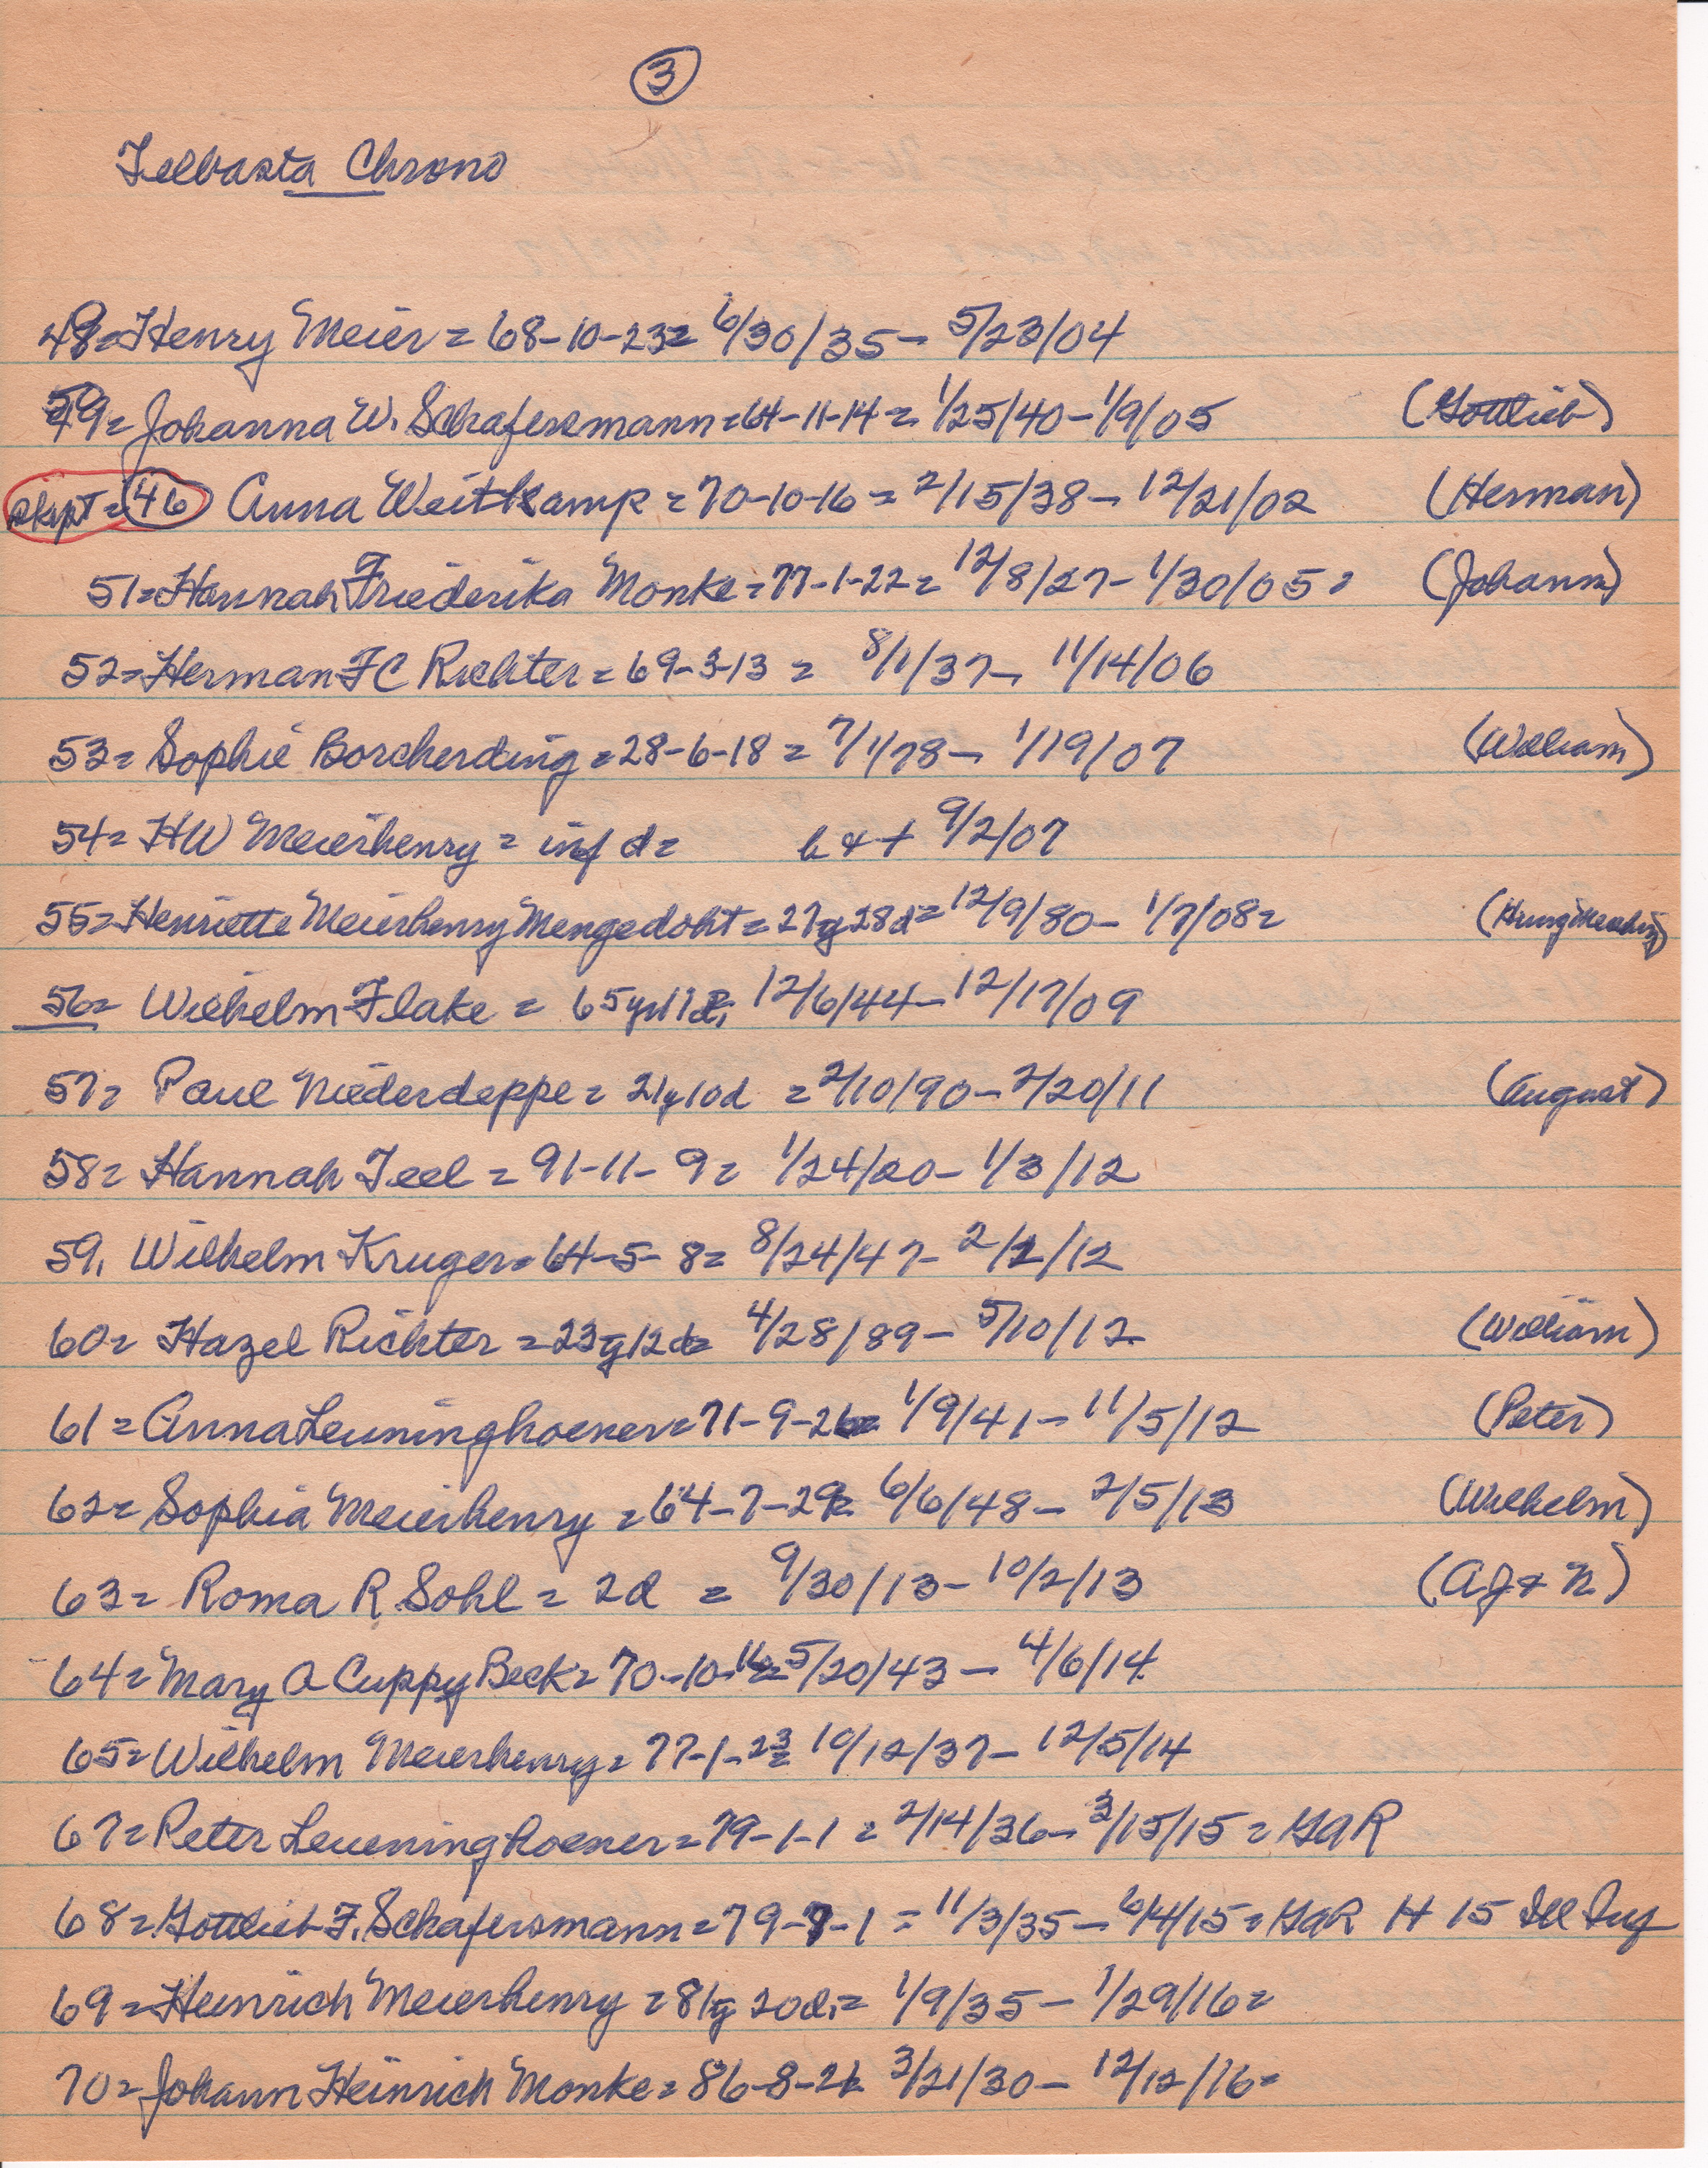 3
Telbasta Chrono
48= Henry Meier = 68-10-23= 6/30/35- 5/23/04
49= Johanna W. Schafersmann = 64-11-14 = 1/25/40-1/9/05 (Gottlieb)
skipt = 46 Anna Weitkamp = 70-10-16 = 2/15/38- 12/21/02 (Herman)
51= Hannah Friederika Monke = 77-1-22 = 12/8/27- 1/30/05 = (Johann)
52= Herman FC Richter = 69-3-13 = 8/1/37- 11/14/06
53= Sophie Borcherding = 28-6-18 = 7/1/78- 1/19/07 (William)
54= HW Meierhenry = inf d= b & + 9/2/07
55= Henriette Meierhenry Mengedoht = 27y 28d = 12/9/80- 1/7/08=
56= Wilhelm Flake = 65yr 11d, 12/6/44- 12/17/09
57= Paul Niederdeppe = 21y 10d = 2/10/90- 2/20/11 (August)
58= Hannah Teel = 91-11- 9= 1/24/20- 1/3/12
59, Wilhelm Kruger = 64-5- 8= 8/24/47- 2/2/12
60= Hazel Richter = 23y 12d= 4/28/89- 5/10/12 (William)
61= Anna Leuninghoener = 71-9-26= 1/9/41- 11/5/12 (Peter)
62= Sophia Meierhenry = 64-7-29= 6/6/48- 2/5/13 (Wilhelm)
63= Roma R. Sohl = 2d = 9/30/13- 10/2/13 (AJ & N)
64= Mary A Cuppy Beck = 70-10-16= 5/20/43 - 4/6/14
65= Wilhelm Meierhenry = 77-1-23= 10/12/37- 12/5/14
67= Peter Leueninghoener = 79-1-1 = 2/14/36- 3/15/15 = GAR
68= Gottlieb F. Schafersmann = 79-7-1 = 11/3/35- 6/4/15 = GAR H 15 Ill Inf
69= Heinrich Meierhenry = 81y 20d, = 1/9/35- 1/29/16=
70= Johann Heinrich Monke = 86-8-21= 3/21/30- 12/12/16=